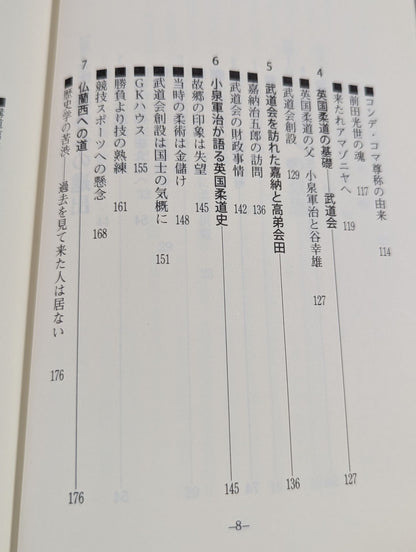 ■コンデ・コマ尊称の由来 114
■前田光世の魂 117
■来たれアマゾニヤへ 119
4 英国柔道の基礎 武道会 127
■英国柔道の父 小泉軍治と谷幸雄 127
■武道会創設 129
5 武道会を訪れた嘉納と高弟会田 136
■嘉納治五郎の訪問 136
■武道会の財政事情 142
6 小泉軍治が語る英国柔道史 145
■故郷の印象は失望 145
■当時の柔術は金儲け 148
■武道会創設は国士の気概に 151
■GKハウス 155
■勝負より技の熟練 161
■競技スポーツへの懸念 168
7 仏蘭西への道 176
■歴史学の苦渋——過去を見て来た人は居ない 176
—8—